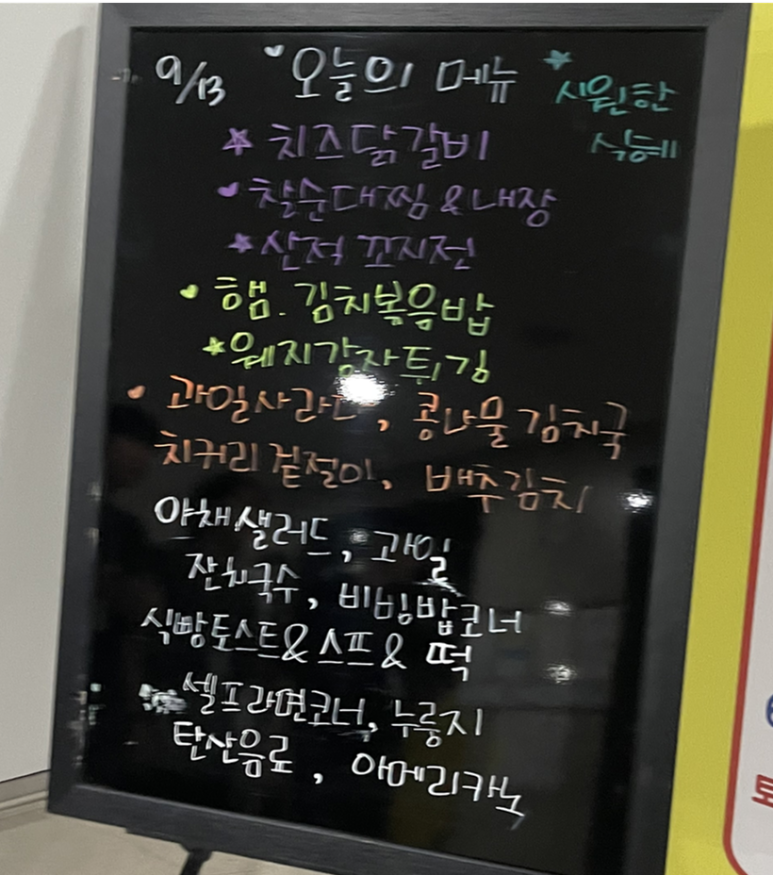 9/13 오늘의 메뉴
시원한
식혜
치즈닭갈비
찰순대찜 & 내장
산적 꼬지전
햄. 김치볶음밥
웨지감자튀김
과일사라다, 콩나물김치국
치커리 겉절이, 배추김치
야채샐러드, 과일
잔치국수, 비빔밥코너
식빵토스트 & 스프 & 떡
셀프라면코너, 누룽지
탄산음료, 아메리카노